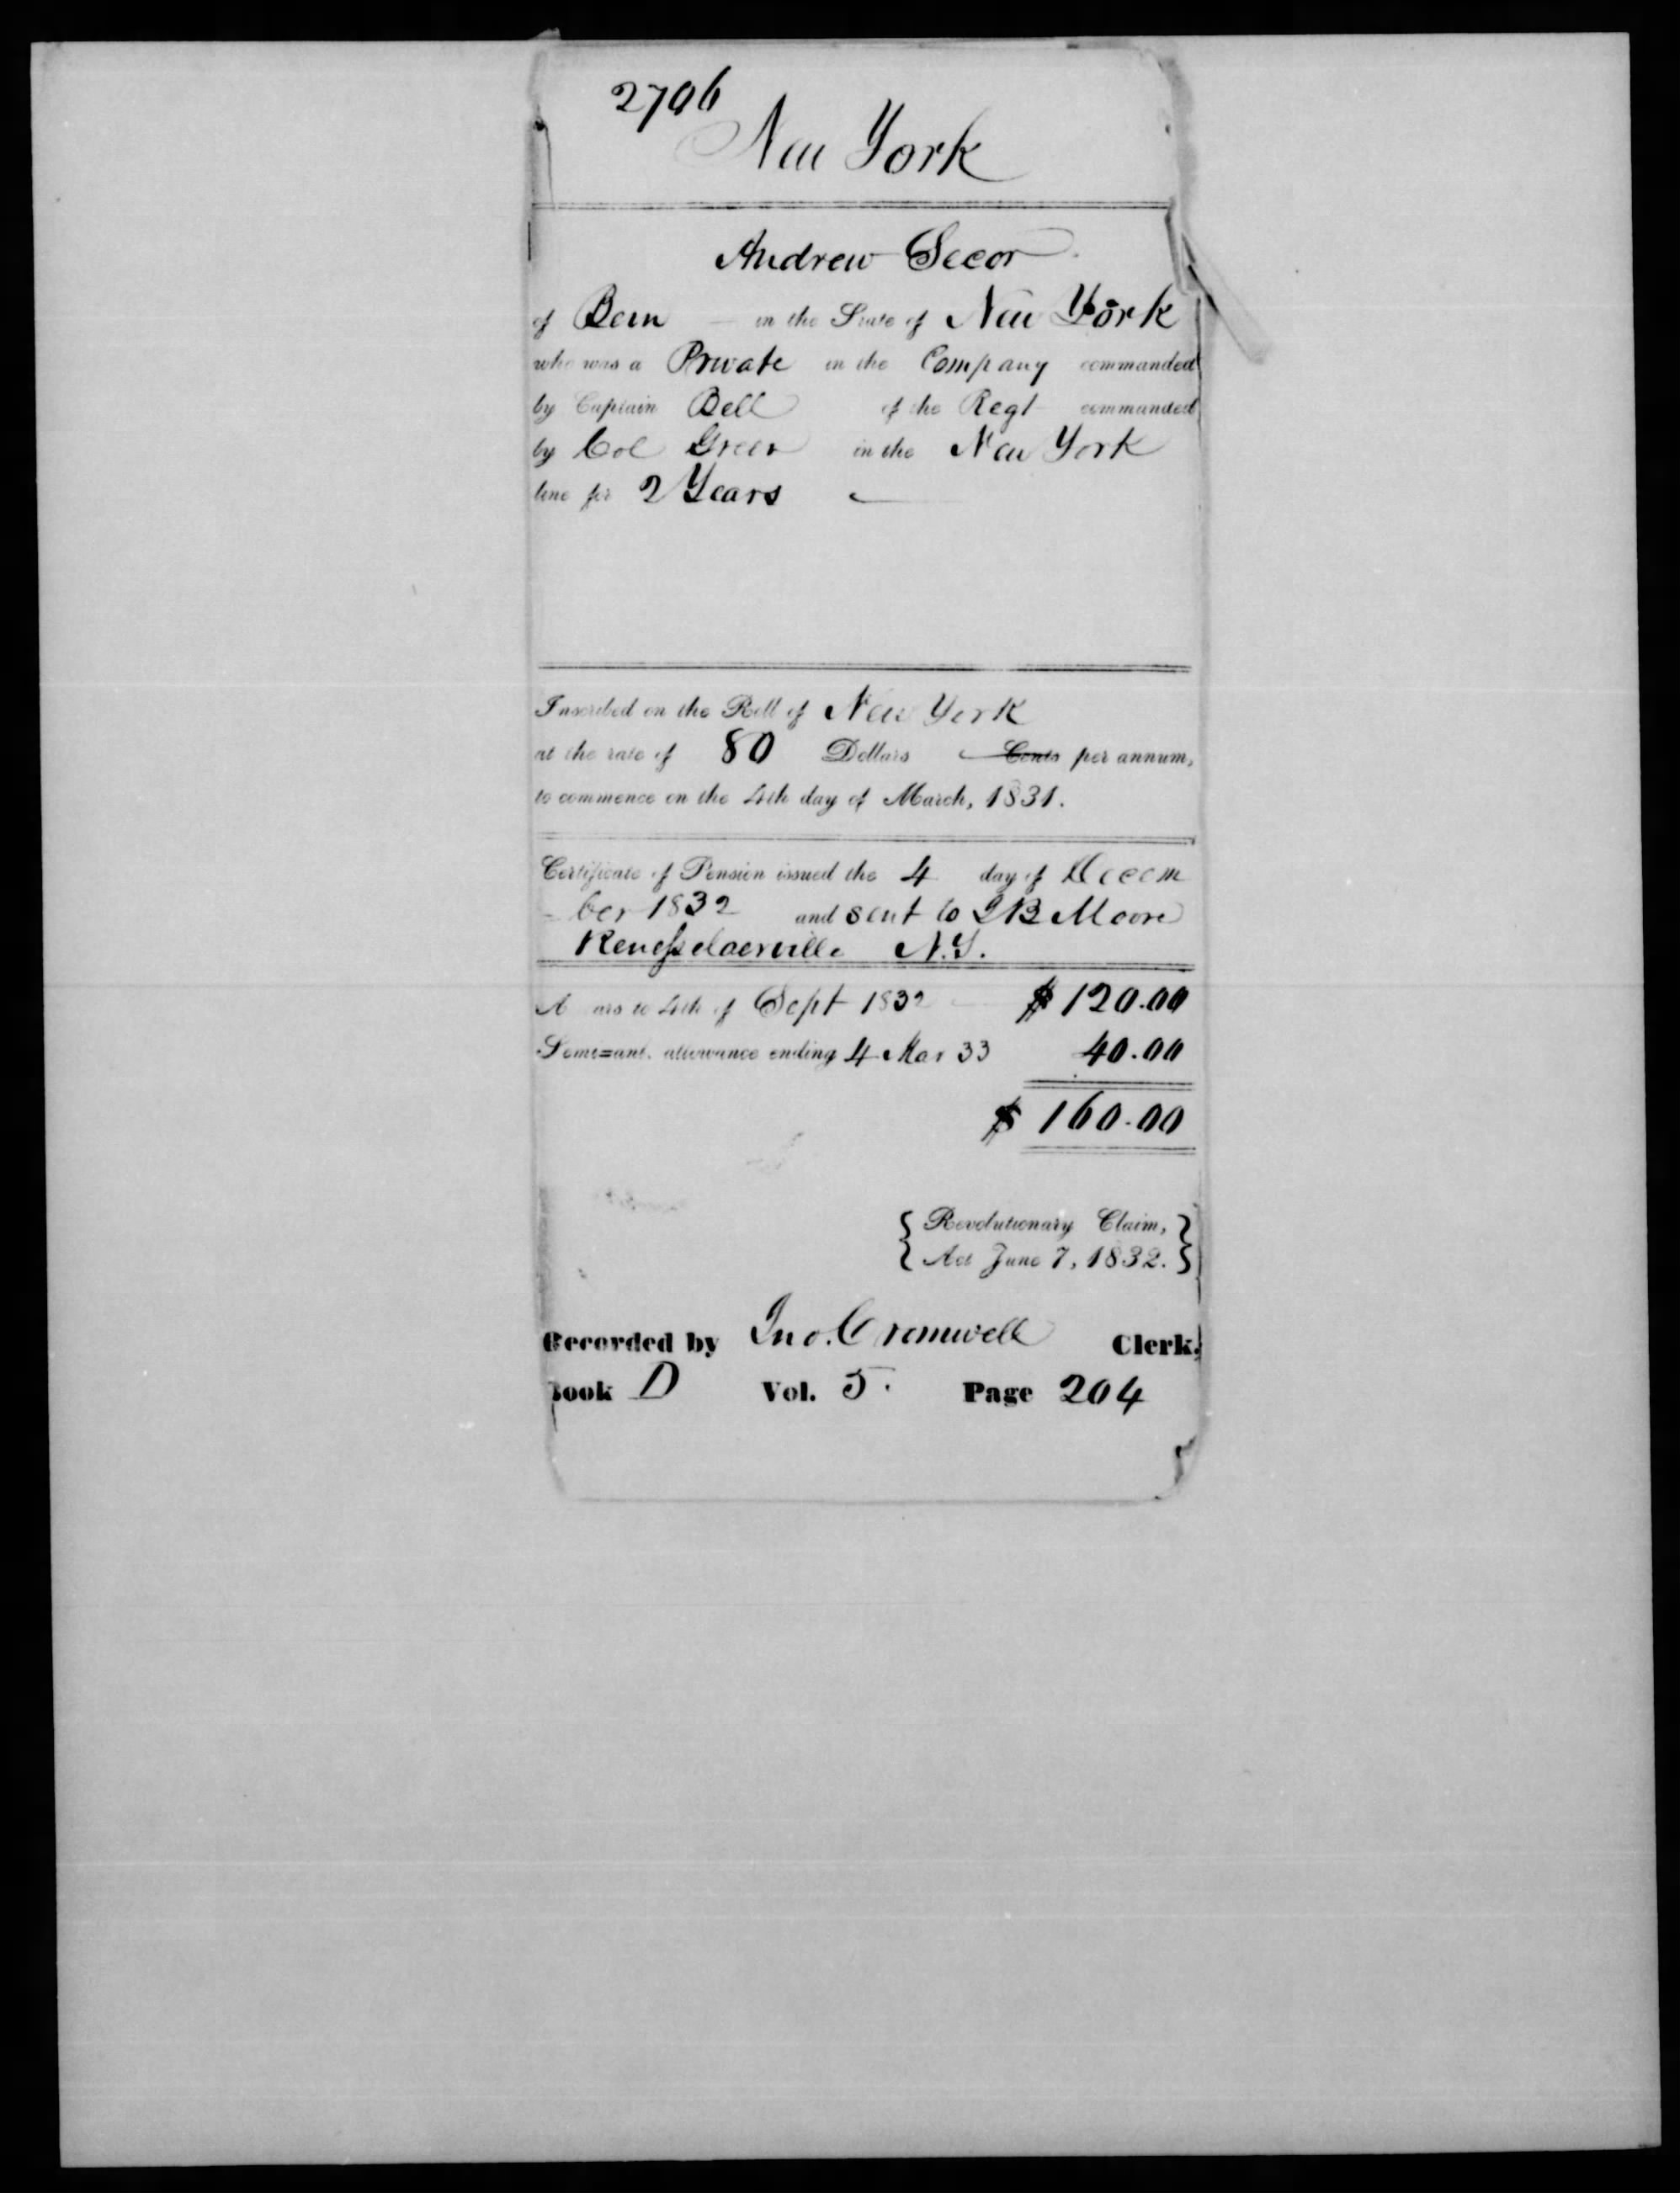 2706
New York
Andrew Secor
of Bern — in the State of New York
who was a Private in the Company commanded
by Captain Bell of the Regt commanded
by Col Green in the New York
line for 2 Years
Inscribed on the Roll of New York
at the rate of 80 Dollars Cents per annum,
to commence on the 4th day of March, 1831.
Certificate of Pension issued the 4 day of Decem
ber 1832 and sent to I B Moore
Rensselaerville N.Y.
A ars to 4th of Sept 1832 $120.00
Semi=anl. allowance ending 4 Mar 33 40.00
$ 160.00
{ Revolutionary Claim, }
{ Act June 7, 1832. }
Recorded by Jno. Cromwell Clerk,
Book D Vol. 5. Page 204